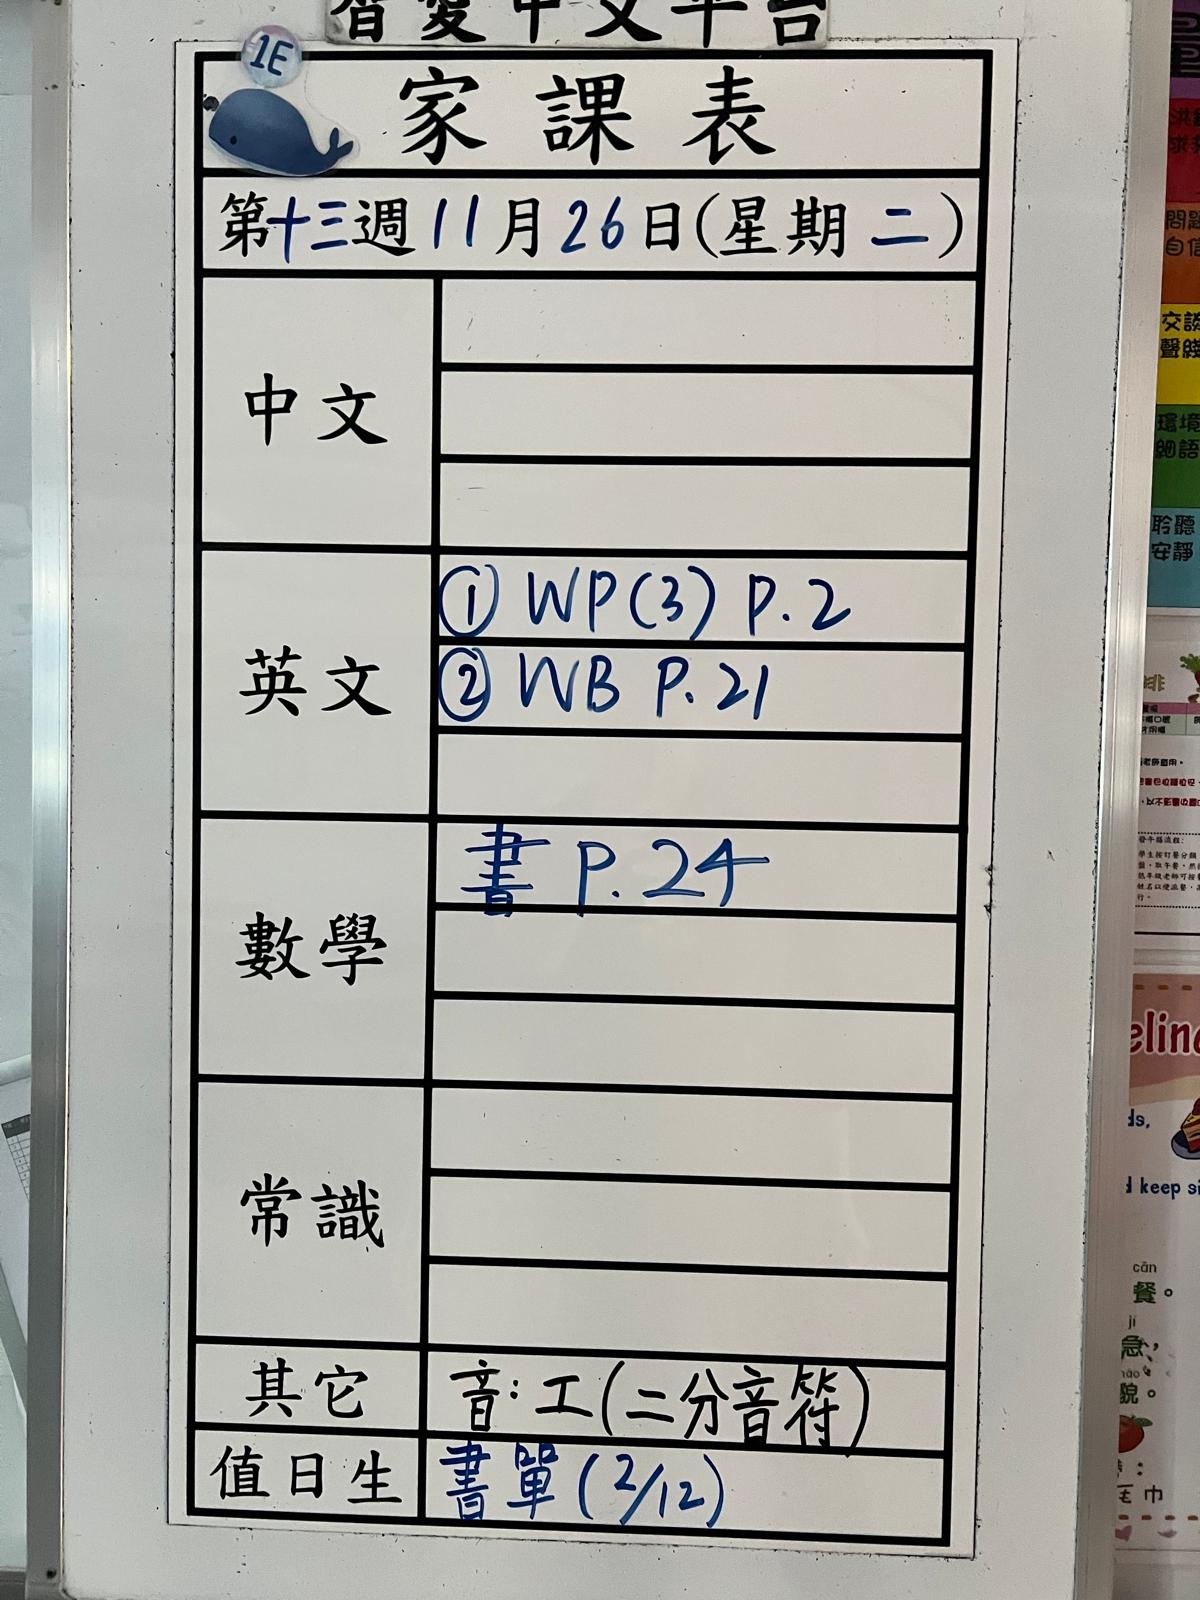 習愛中文平台
1E
家課表
第十三週11月26日(星期二)
中文
英文
① WP(3) P.2
② WB P.21
數學
書 P.24
常識
其它
音:工(二分音符)
值日生
書單(2/12)
問題
自信
環境
細語
聆聽
安靜
keep si
cān
餐。
jí
急,
貌。
巾